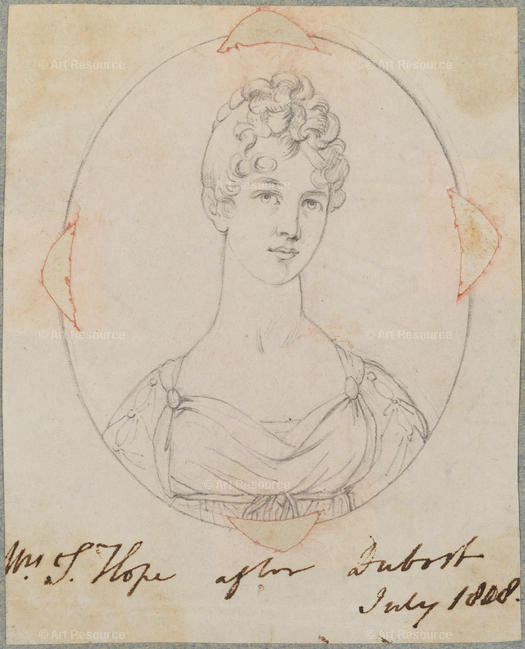 © Art Resource © Art Resource
© Art Resource © Art Resource
© Art Resource
Mrs T. Hope after Dubost
July 1808.
© Art Resource © Art Resource